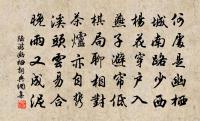 何處是幽栖
城南路少西
楊花穿戶入
燕子避簾低
棋局聊相對
茶爐亦自攜
溪頭雲易合
晚雨又成泥
陸游幽栖